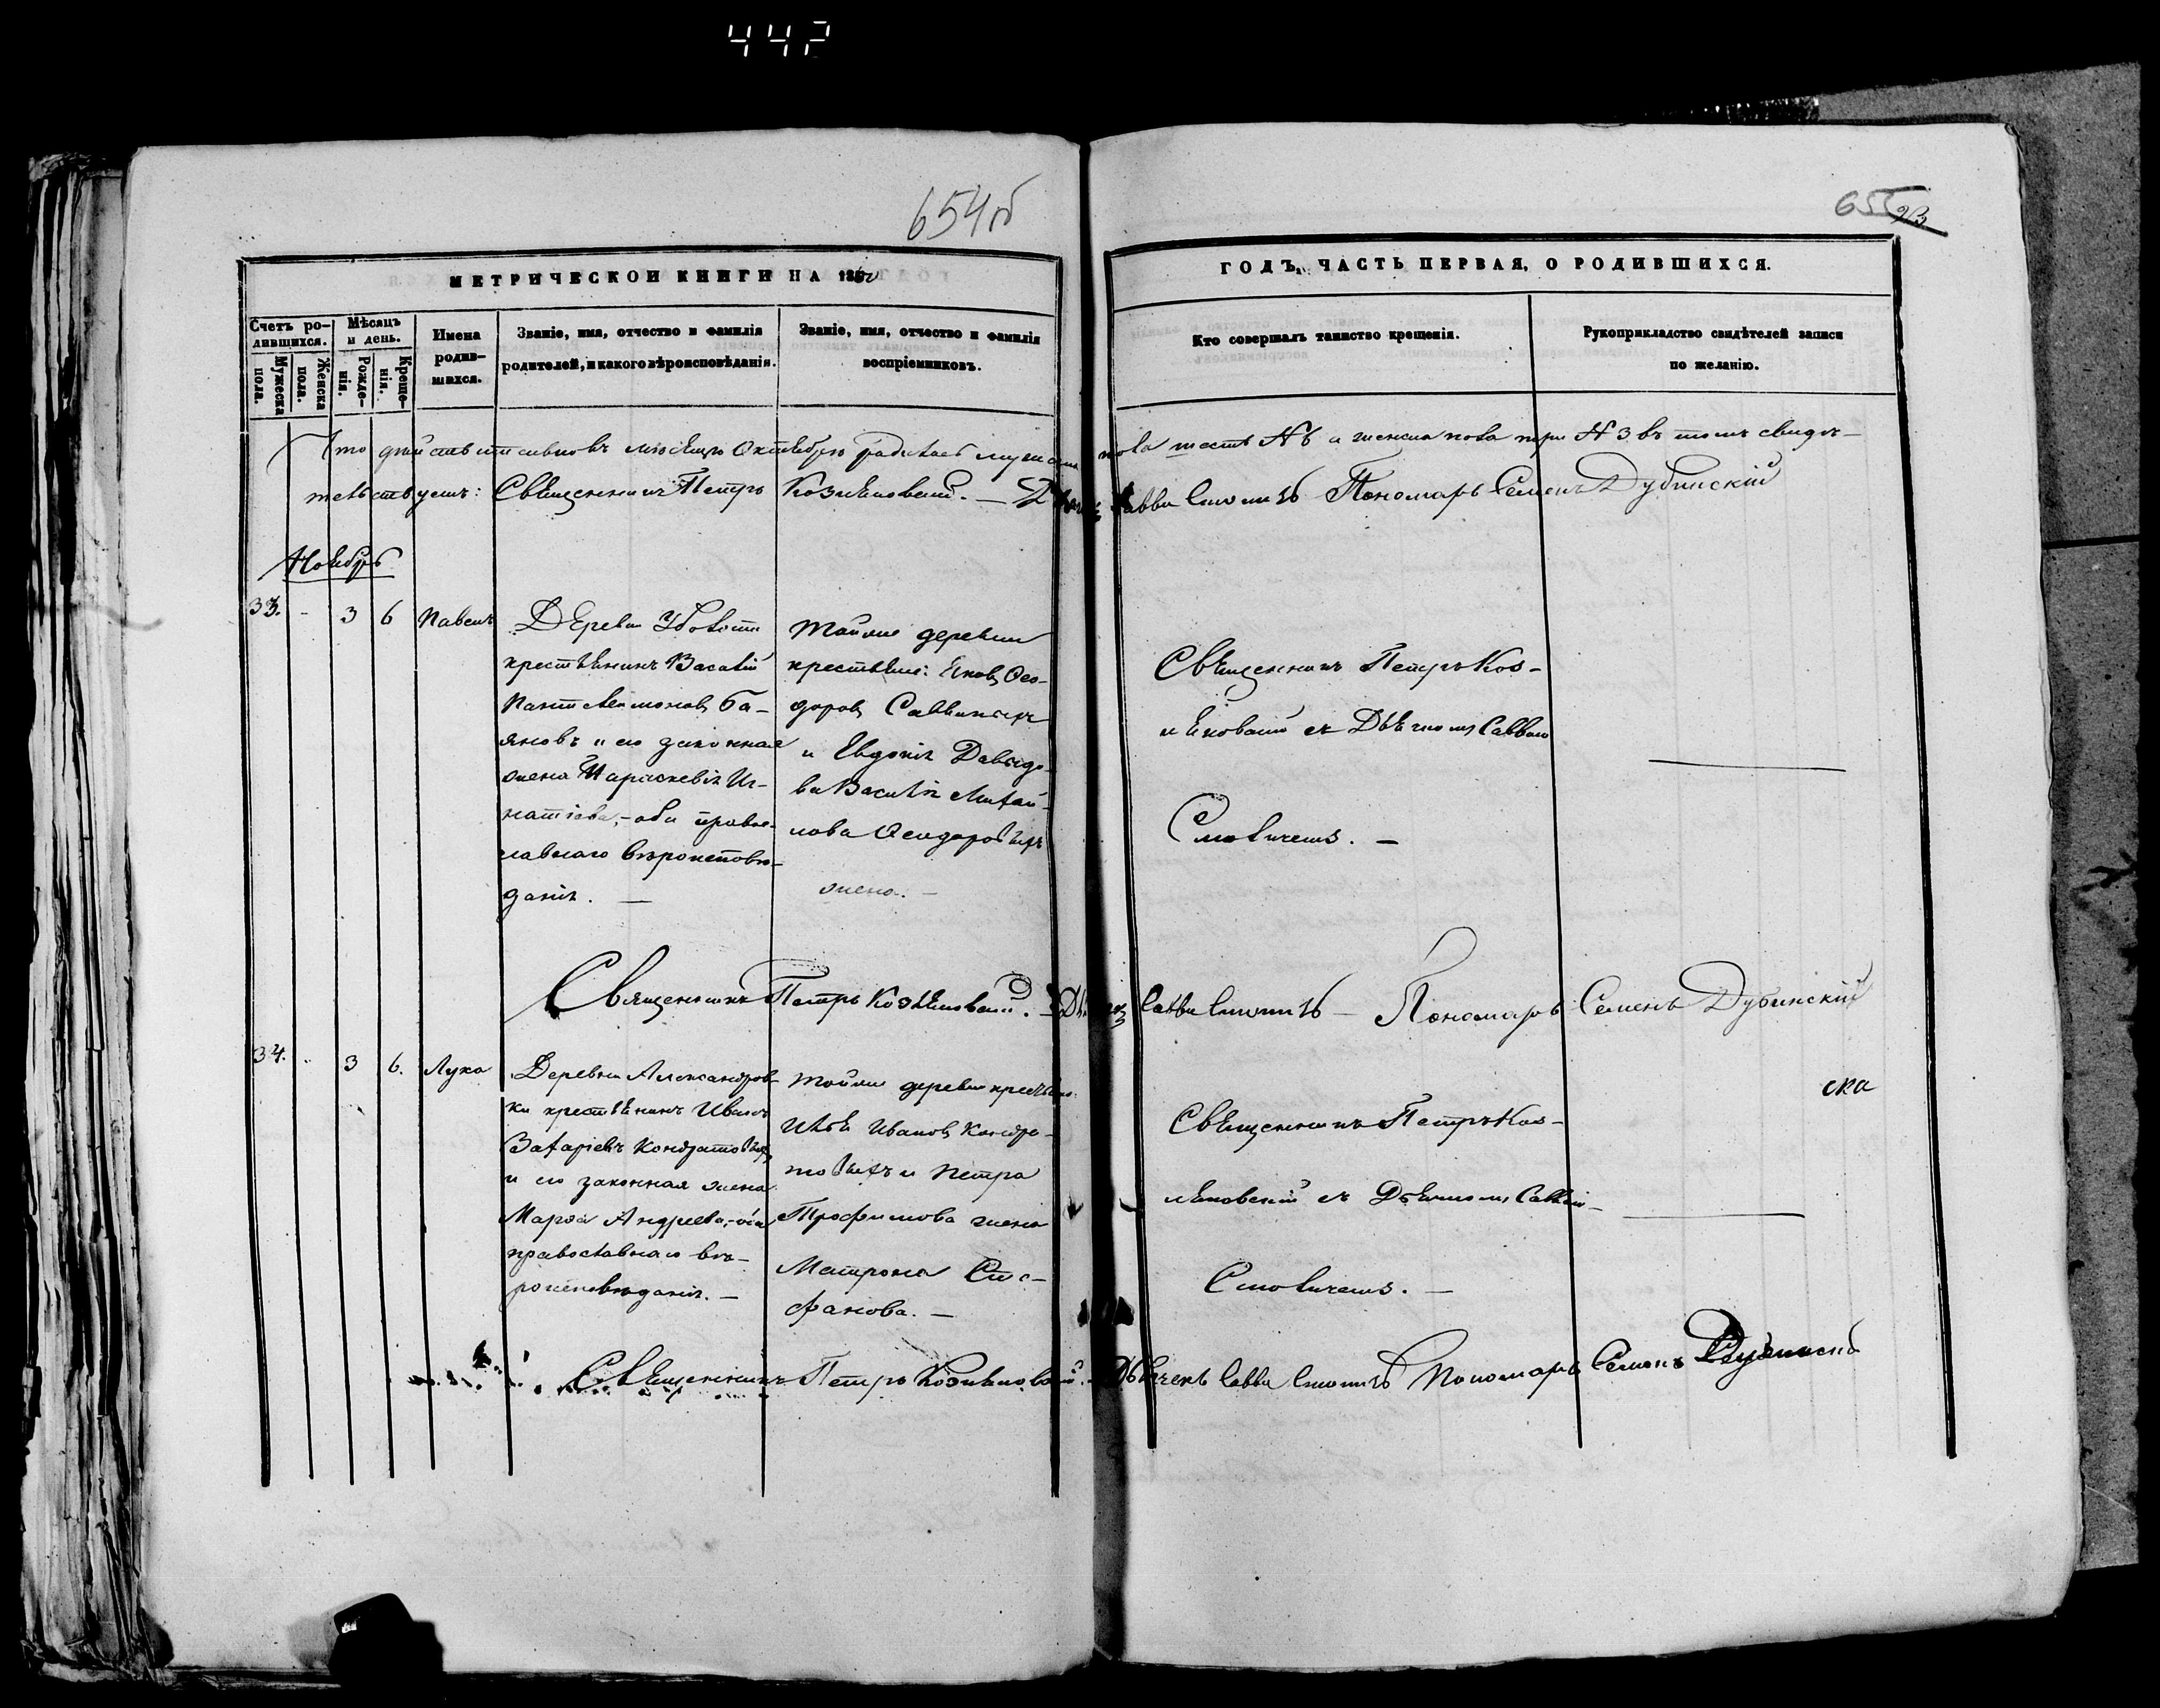 442
654об
655
МЕТРИЧЕСКОЙ КНИГИ НА 18
ГОДЪ, ЧАСТЬ ПЕРВАЯ, О РОДИВШИХСЯ.
Счетъ ро-
дившихся.
Мужеска
пола.
Женска
пола.
Мѣсяцъ
и день.
Рожде-
нія.
Креще-
нія.
Имена
родив-
шихся.
Званіе, имя, отчество и фамилія
родителей, и какого вѣроисповѣданія.
Званіе, имя, отчество и фамилія
воспріемниковъ.
Кто совершалъ таинство крещенія.
Рукоприкладство свидѣтелей записи
по желанію.
Что дѣйствительно въ мѣсяцѣ Октябрѣ родилось мужеска пола шесть № 6 и женска пола три № 3 въ томъ свидѣ-
тельствуемъ: Священникъ Петръ Савва Пономарь Семенъ Дубинскій
Ноябрь
33. - 3 6 Павелъ
Деревни
крестьянинъ Василій
Пантелеимоновъ Ба-
яновъ и его законная
жена Параскевія Иг-
натіева, - оба правос-
лавнаго вѣроисповѣ-
данія. —
Тойже деревни
крестьян: Ѳео-
доровъ
и Евдокія Давидо-
ва Василія Михай-
лова Ѳеодоровыхъ
жена. —
Священникъ Петръ Коз-
съ Дьячкомъ Саввою
Священникъ Петръ Савва Пономарь Семенъ Дубинскій
34. - 3 6. Лука
Деревни Александров-
ки крестьянинъ Иванъ
Захаріевъ Кондратовыхъ
и его законная жена
Марѳа Андреева, - оба
православнаго вѣ-
роисповѣданія. —
Тойже деревни
Ивановъ Кондра-
товыхъ и Петра
Трофимова жена
Матрона Сте-
фанова. —
Священникъ Петръ Коз-
съ Дьячкомъ
ска
Священникъ Петръ Дьячекъ Савва Пономарь Семенъ